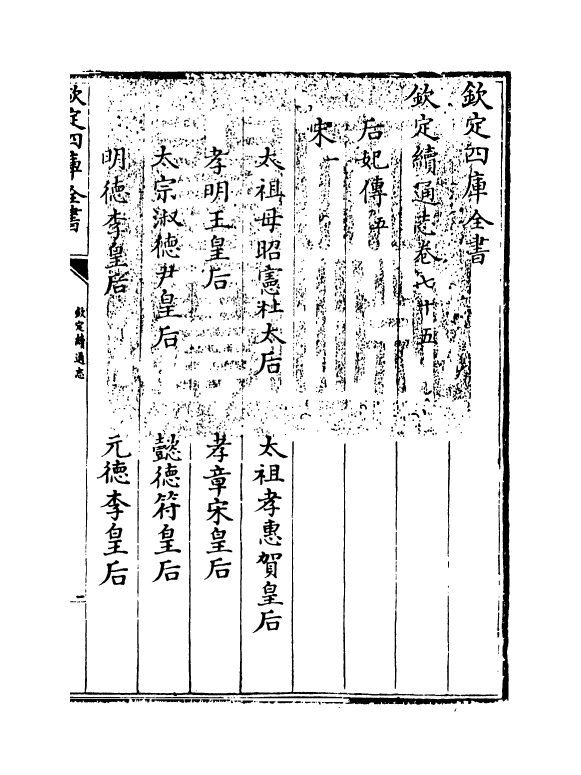 欽定四庫全書
欽定續通志卷七十五
后妃傳
宋一
太祖母昭憲杜太后　太祖孝惠賀皇后
孝明王皇后　孝章宋皇后
太宗淑德尹皇后　懿德符皇后
明德李皇后　元德李皇后
欽定四庫全書　欽定續通志　一